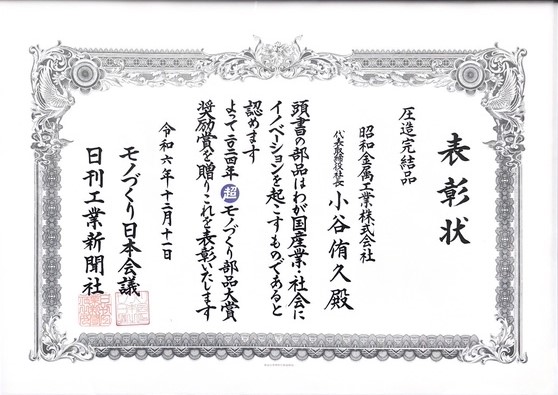 表彰状
圧造完結品
昭和金属工業株式会社
代表取締役社長 小谷侑久殿
頭書の部品はわが国産業・社会に
イノベーションを起こすものであると
認めます
よって二〇二四年超モノづくり部品大賞
奨励賞を贈りこれを表彰いたします
令和六年十二月十一日
モノづくり日本会議
日刊工業新聞社